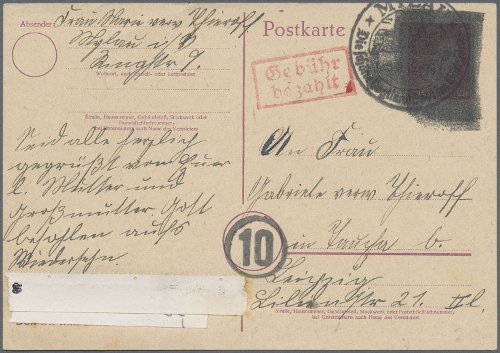 Absender: Frau Marie verw Thieroff
Mylau i/V
Ringstr. 9.
Wohnort, auch Zustell- oder Leitpostamt
Straße, Hausnummer, Gebäudeteil, Stockwerk oder
Postschließfachnummer;
bei Untermietern auch Name des Vermieters
Postkarte
MYLAU
Gebühr
bezahlt
Seid alle herzlich
gegrüßt vom Euer
l. Mutter und
Großmutter. Gott
befohlen aufs
Wiedersehn.
An Frau
Gabriele verw Thieroff
10
in Taucha b.
Leipzig
Lilienstr 21. II l.
Straße, Hausnummer, Gebäudeteil, Stockwerk oder Postschließfachnummer,
bei Untermietern auch Name des Vermieters